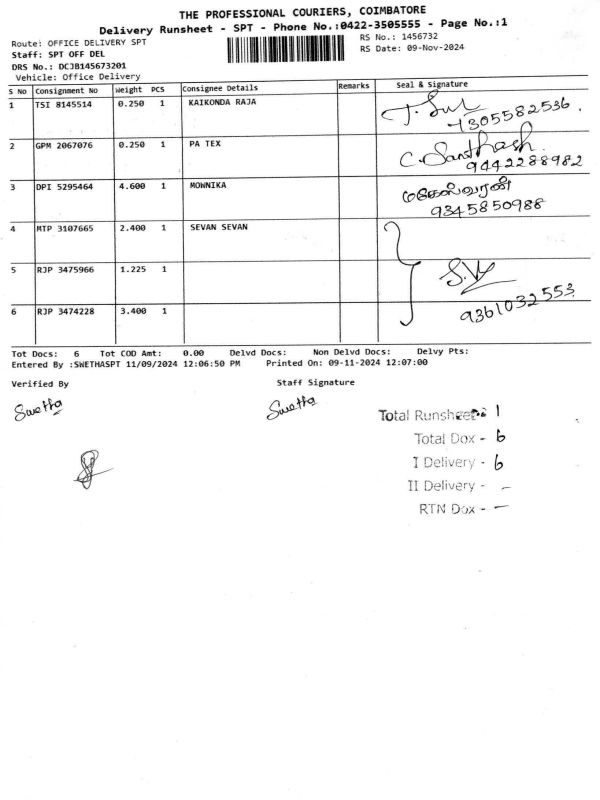 THE PROFESSIONAL COURIERS, COIMBATORE
Delivery Runsheet - SPT - Phone No.:0422-3505555 - Page No.:1
Route: OFFICE DELIVERY SPT
RS No.: 1456732
Staff: SPT OFF DEL
RS Date: 09-Nov-2024
DRS No.: DCJB145673201
Vehicle: Office Delivery
S No Consignment No Weight PCS Consignee Details Remarks Seal & Signature
1 TSI 8145514 0.250 1 KAIKONDA RAJA
7305582536.
2 GPM 2067076 0.250 1 PA TEX C. Santhosh.
9442288982
3 DPI 5295464 4.600 1 MOWNIKA மகேஸ்வரன்
9345850988
4 MTP 3107665 2.400 1 SEVAN SEVAN
5 RJP 3475966 1.225 1
9361032553.
6 RJP 3474228 3.400 1
Tot Docs: 6 Tot COD Amt: 0.00 Delvd Docs: Non Delvd Docs: Delvy Pts:
Entered By :SWETHASPT 11/09/2024 12:06:50 PM Printed On: 09-11-2024 12:07:00
Verified By Staff Signature
Swetha Swetha
Total Runsheet - 1
Total Dox - 6
I Delivery - 6
II Delivery - -
RTN Dox - -